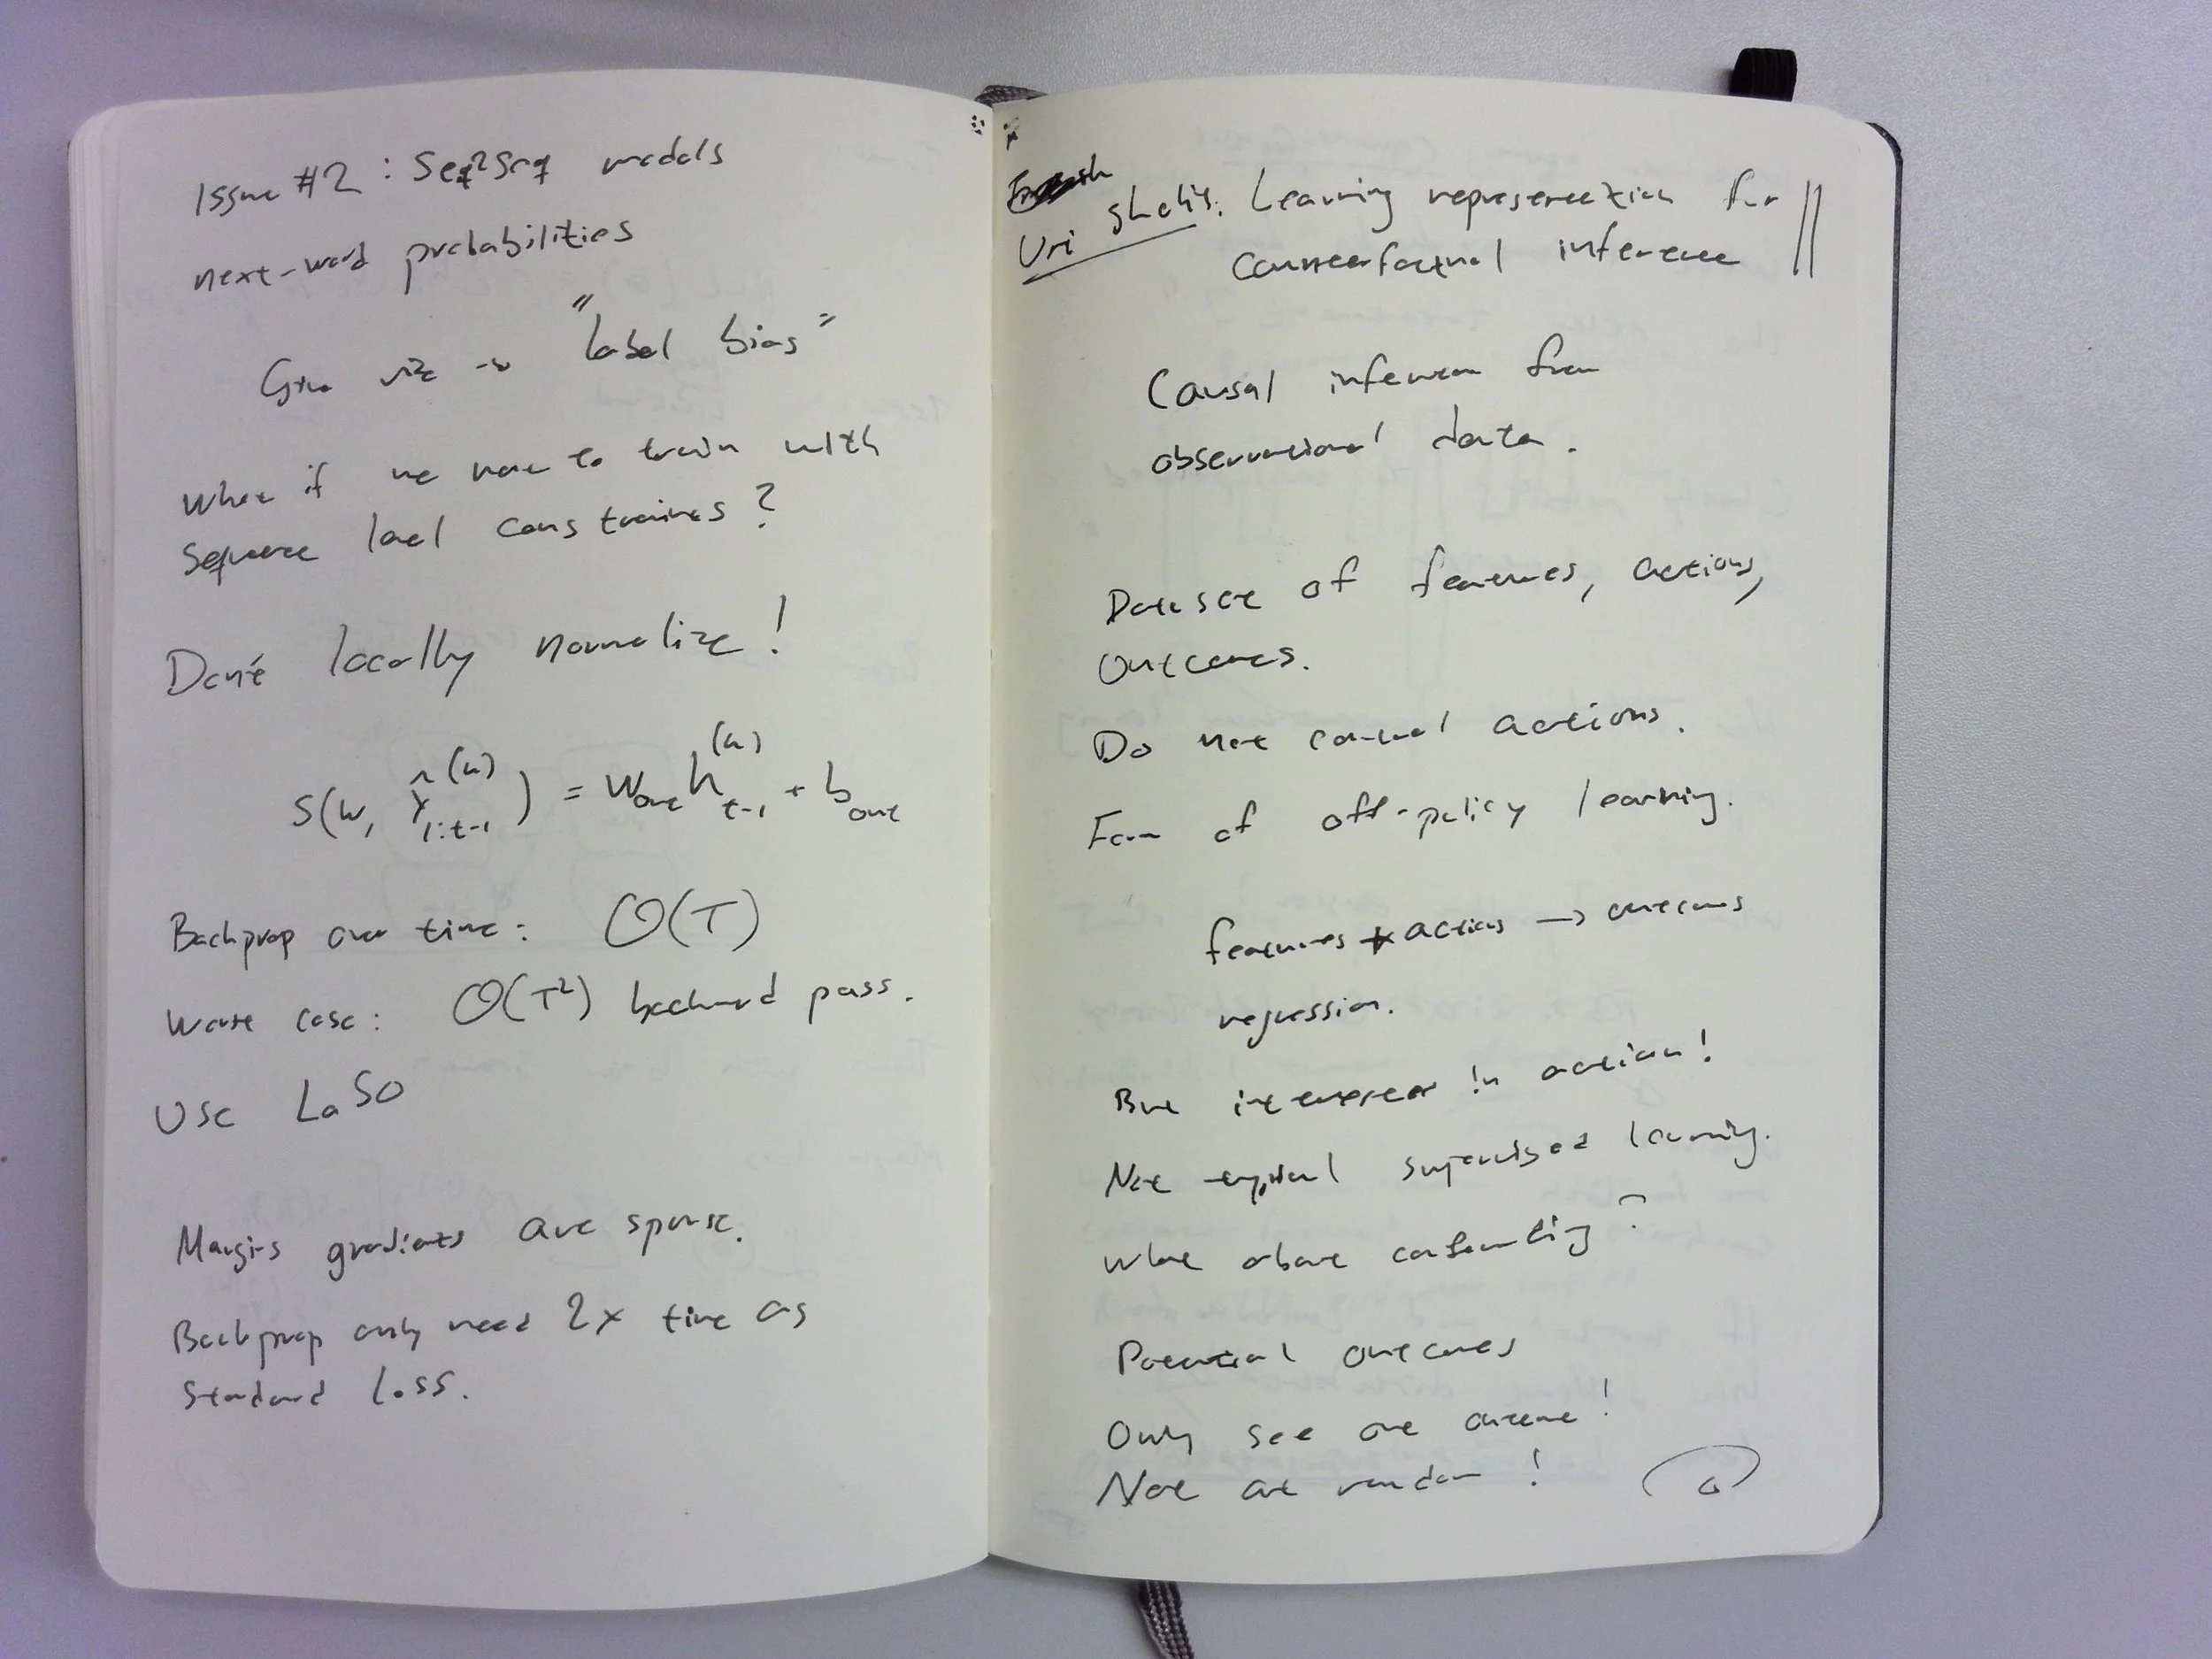 Issue #2 : Seq2Seq models
next-word probabilities
"Label bias"
What if we want to train with
Sequence level constraints?
Don't locally normalize!
S(w, ŷ_{1:t-1}^{(k)}) = W_{out} h_{t-1}^{(k)} + b_{out}
Backprop over time: O(T)
Worst case: O(T²) backward pass.
Use LaSO
Margins gradients are sparse.
Backprop only need 2x time as
Standard loss.
Uri Shalit: Learning representation for
Counterfactual inference
Causal inference from
observational data.
Dataset of features, actions,
Outcomes.
Do not control actions.
Form of off-policy learning.
features + actions → outcomes
regression.
But interested in action!
Not typical supervised learning.
What about confounding?
Potential outcomes
Only see one outcome!
Not at random!